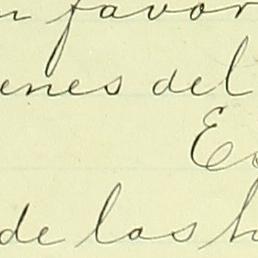 n favor
enes del
Es
de las h